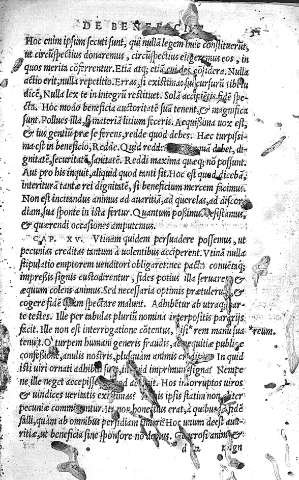 DE BENEFICIIS
Hoc enim ipsum secuti sunt, qui nullā legem huic constituerūt,
ut circūspectius donaremus, circūspectius eligeremus eos, in
quos merita cōferrentur. Etiā atq; etiā cui des cōsidera. Nulla
actio erit, nulla repetitio. Erras, si existimas succursurū tibi iu
dicē. Nulla lex te in integrū restituet. Solā accipiētis fidē spe-
cta. Hoc modo beneficia auctoritatē suā tenent, & magnifica
sunt. Pollues illa, si materiā litium feceris. Aequissima uox est,
& ius gentiū prae se ferens, redde quod debes. Haec turpissi-
ma est in beneficio, Redde. Quid reddet? debet, di-
gnitatē, securitatē, sanitatē. Reddi maxima quaeq; nō possunt.
Aut pro his inquit, aliquid quod tanti sit. Hoc est quod dicebā,
interiturā tantae rei dignitatē, si beneficium mercem facimus.
Non est incitandus animus ad auaritiā, ad querelas, ad discor
diam, sua sponte in ista fertur. Quantum possimus resistamus,
& quaerendi occasiones amputemus.
CAP. XV. Vtinam quidem persuadere possemus, ut
pecunias creditas tantum à uolentibus acciperent. Vtinā nulla
stipulatio emptorem uenditori obligaret: nec pacta conuētaq;
impressis signis custodirentur, fides potius illa seruaret, &
aequum colens animus. Sed necessaria optimis praetulerūt, &
cogere fidem quàm spectare malunt. Adhibētur ab utraq; par-
te testes. Ille per tabulas pluriū nomina interpositis parariis,
facit. Ille non est interrogatione cōtentus, nisi rem manu sua reum.
tenuit. O turpem humani generis fraudis, ac nequitiae publicae
confessionē, anulis nostris, plusquàm animis creditur. In quid
isti uiri ornati adhibiti sunt, in quid imprimunt signa? Nempe
ne ille neget accepisse se quod accepit. Hos incorruptos uiros
& uindices ueritatis existimas? At his ipsis statim non aliter
pecuniae committuntur. Ita non honestius erat, à quibusdā fidē
falli, quàm ab omnibus perfidiam timeri? Hoc unum deest aua-
ritiae, ut beneficia sine sponsore nō demus. Generosi animi &